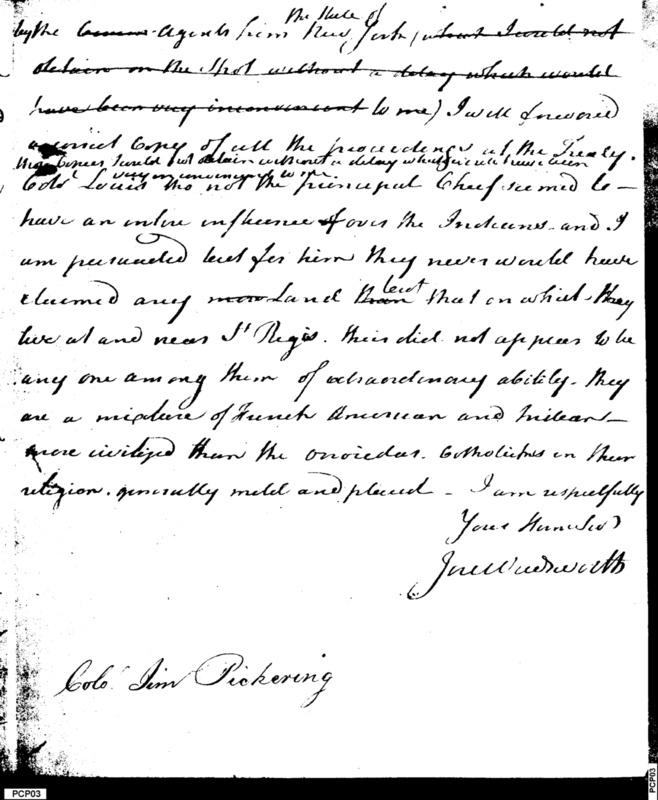 the State of
by the Agents from New York, what I would not
obtain on the Spot without a delay which would
have been very inconvenient to me) I will forward
a correct Copy of all the proceedings at the Treaty.
these Copies I could not obtain without a delay which would have been
very inconvenient to me.
Colo. Louis tho not the principal Chief seemed to
have an intire influence of over the Indians - and I
am persuaded but for him they never would have
claimed any more Land than but that on which they
live at and near St. Regis. their did not appear to be
any one among them of extraordinary ability. they
are a mixture of French American and Indian -
more civilized than the onoiedas. Catholicks in their
religion. generally mild and placid - I am respectfully
Your Hum Servt
Jere Wadsworth
Colo. Tim Pickering
PCP03
PCP03